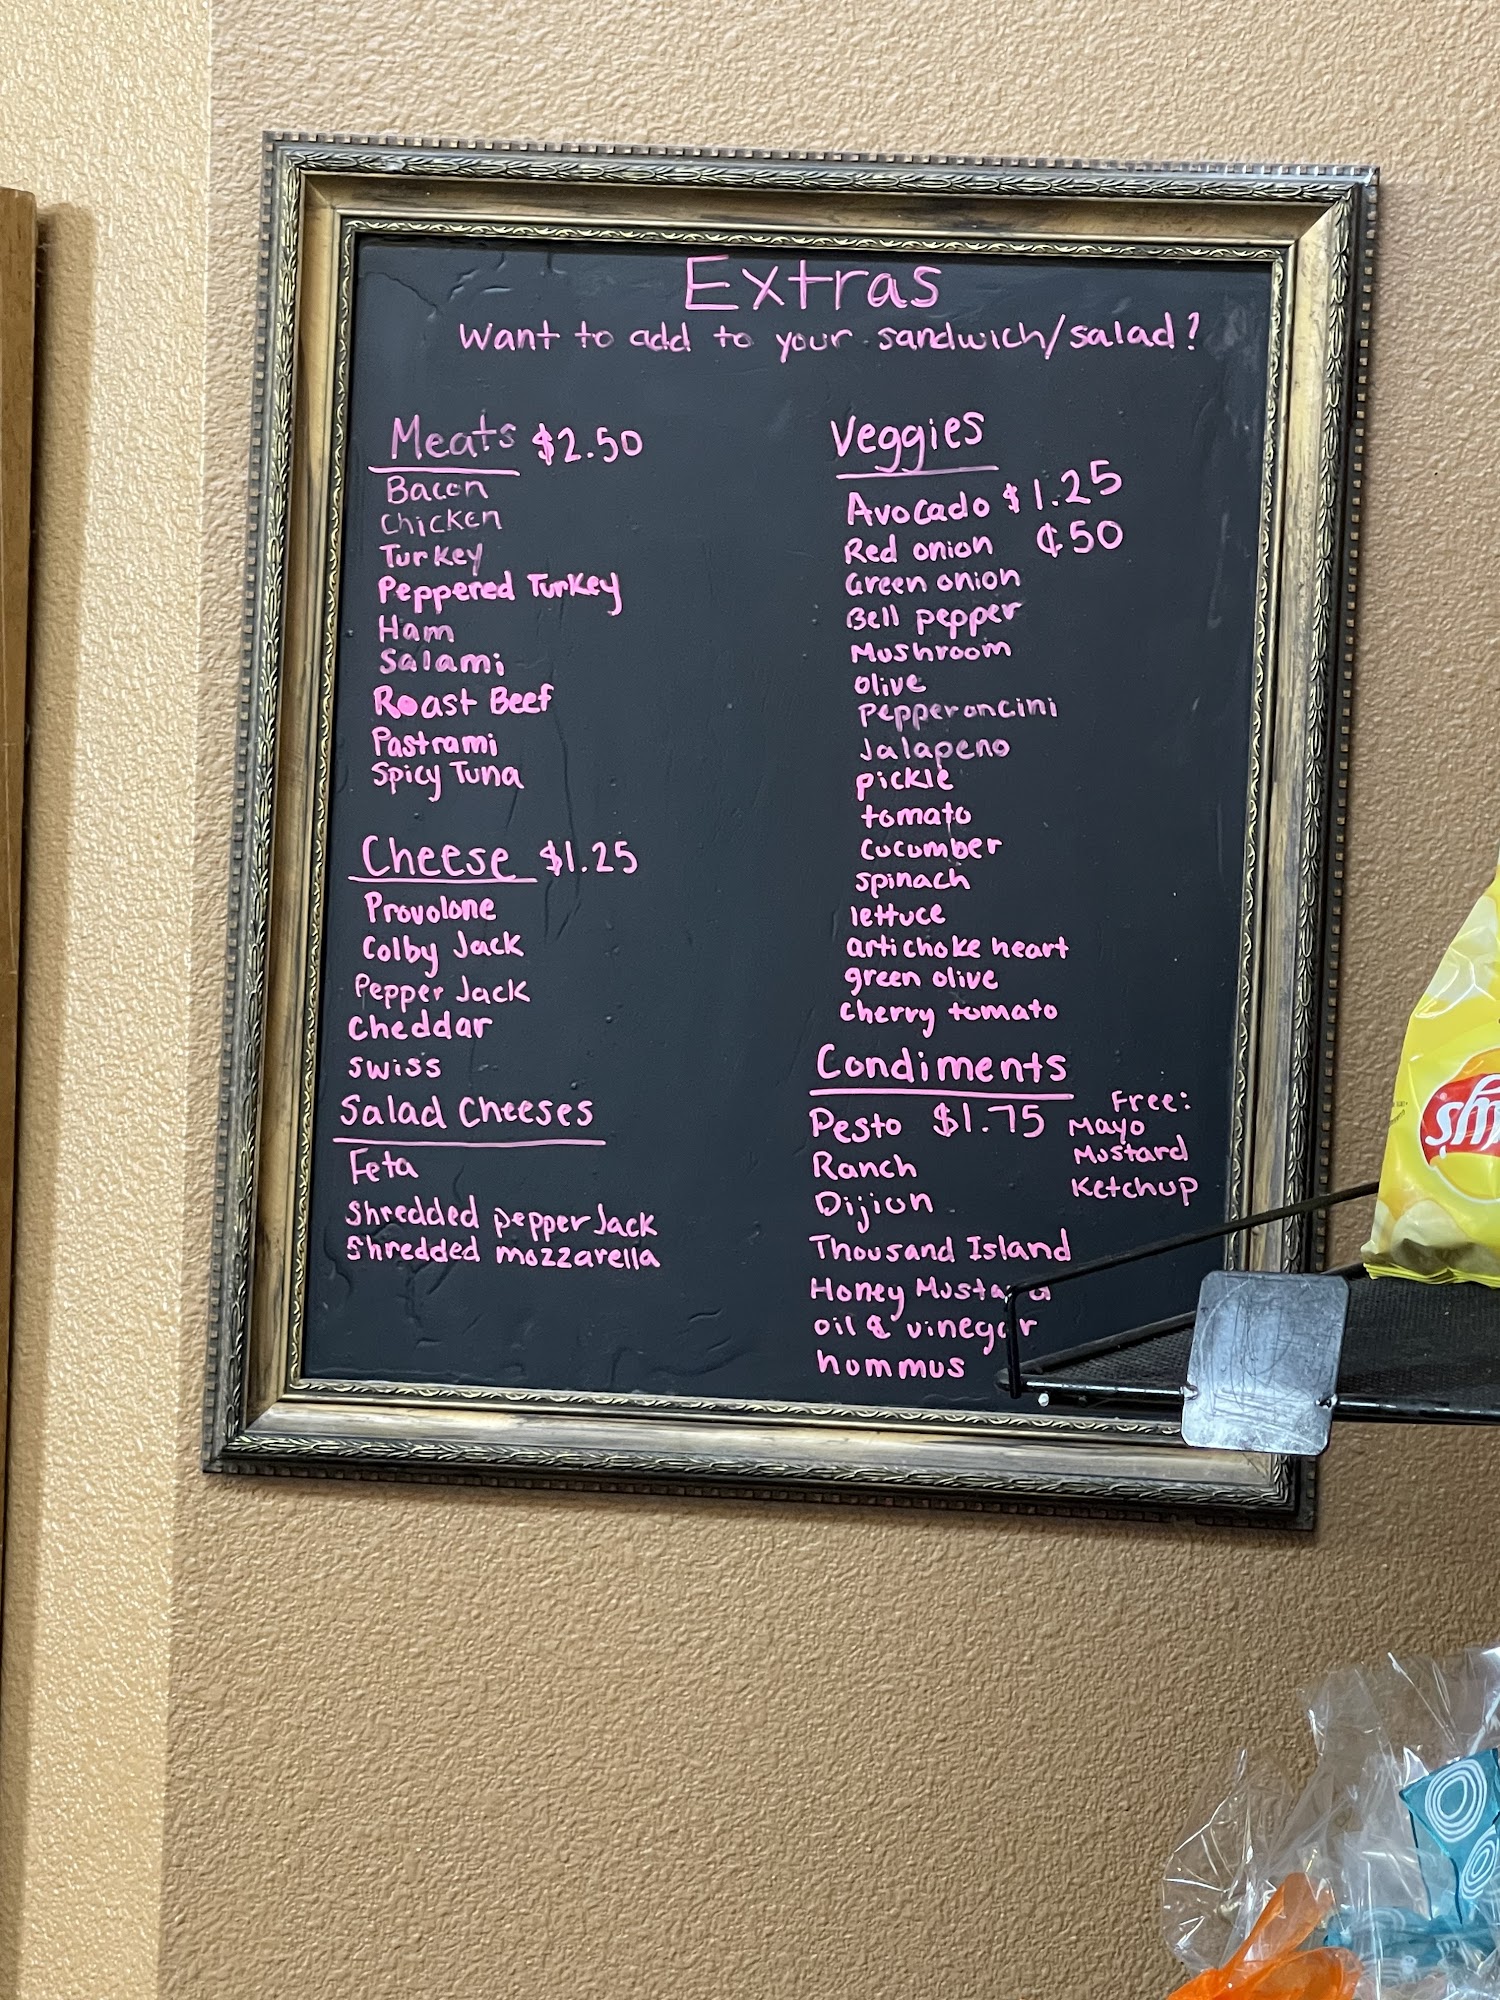 Extras
Want to add to your sandwich/salad?
Meats $2.50
Bacon
Chicken
Turkey
Peppered Turkey
Ham
Salami
Roast Beef
Pastrami
Spicy Tuna
Cheese $1.25
Provolone
Colby Jack
Pepper Jack
Cheddar
swiss
Salad Cheeses
Feta
Shredded pepper Jack
Shredded mozzarella
Veggies
Avocado $1.25
Red onion ¢50
Green onion
Bell pepper
Mushroom
olive
Pepperoncini
Jalapeno
pickle
tomato
cucumber
spinach
lettuce
artichoke heart
green olive
cherry tomato
Condiments
Pesto $1.75
Ranch
Dijion
Thousand Island
Honey Mustard
oil & vinegar
hommus
Free:
Mayo
Mustard
Ketchup